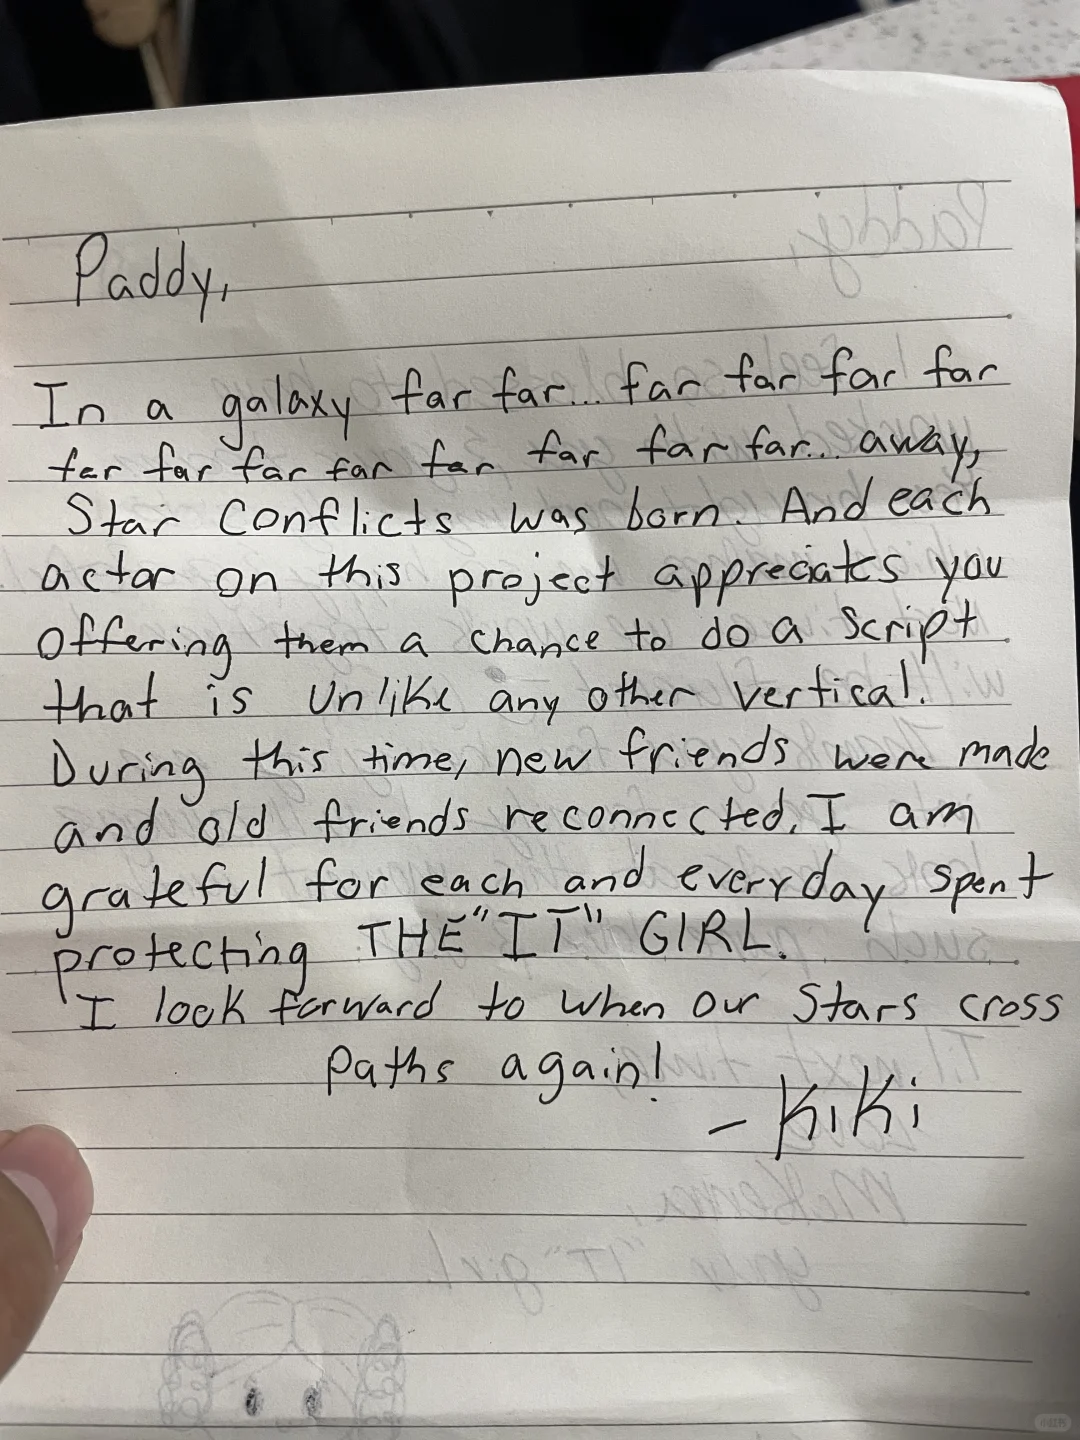 Paddy,
In a galaxy far far... far far far far
far far far far far far far far... away,
Star Conflicts was born. And each
actor on this project appreciates you
offering them a chance to do a script
that is unlike any other vertical.
During this time, new friends were made
and old friends reconnected. I am
grateful for each and everyday spent
protecting THE "IT" GIRL.
I look forward to when our stars cross
paths again!
- KiKi